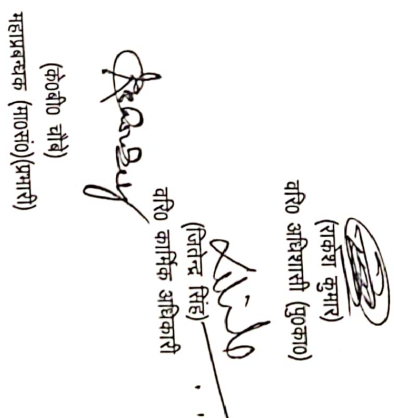 (राकेश कुमार)
वरि० अधिशासी (पु०का०)
(जितेन्द्र सिंह)
वरि० कार्मिक अधिकारी
(के०बी० चौबे)
महाप्रबन्धक (मा०सं०)(प्रभारी)